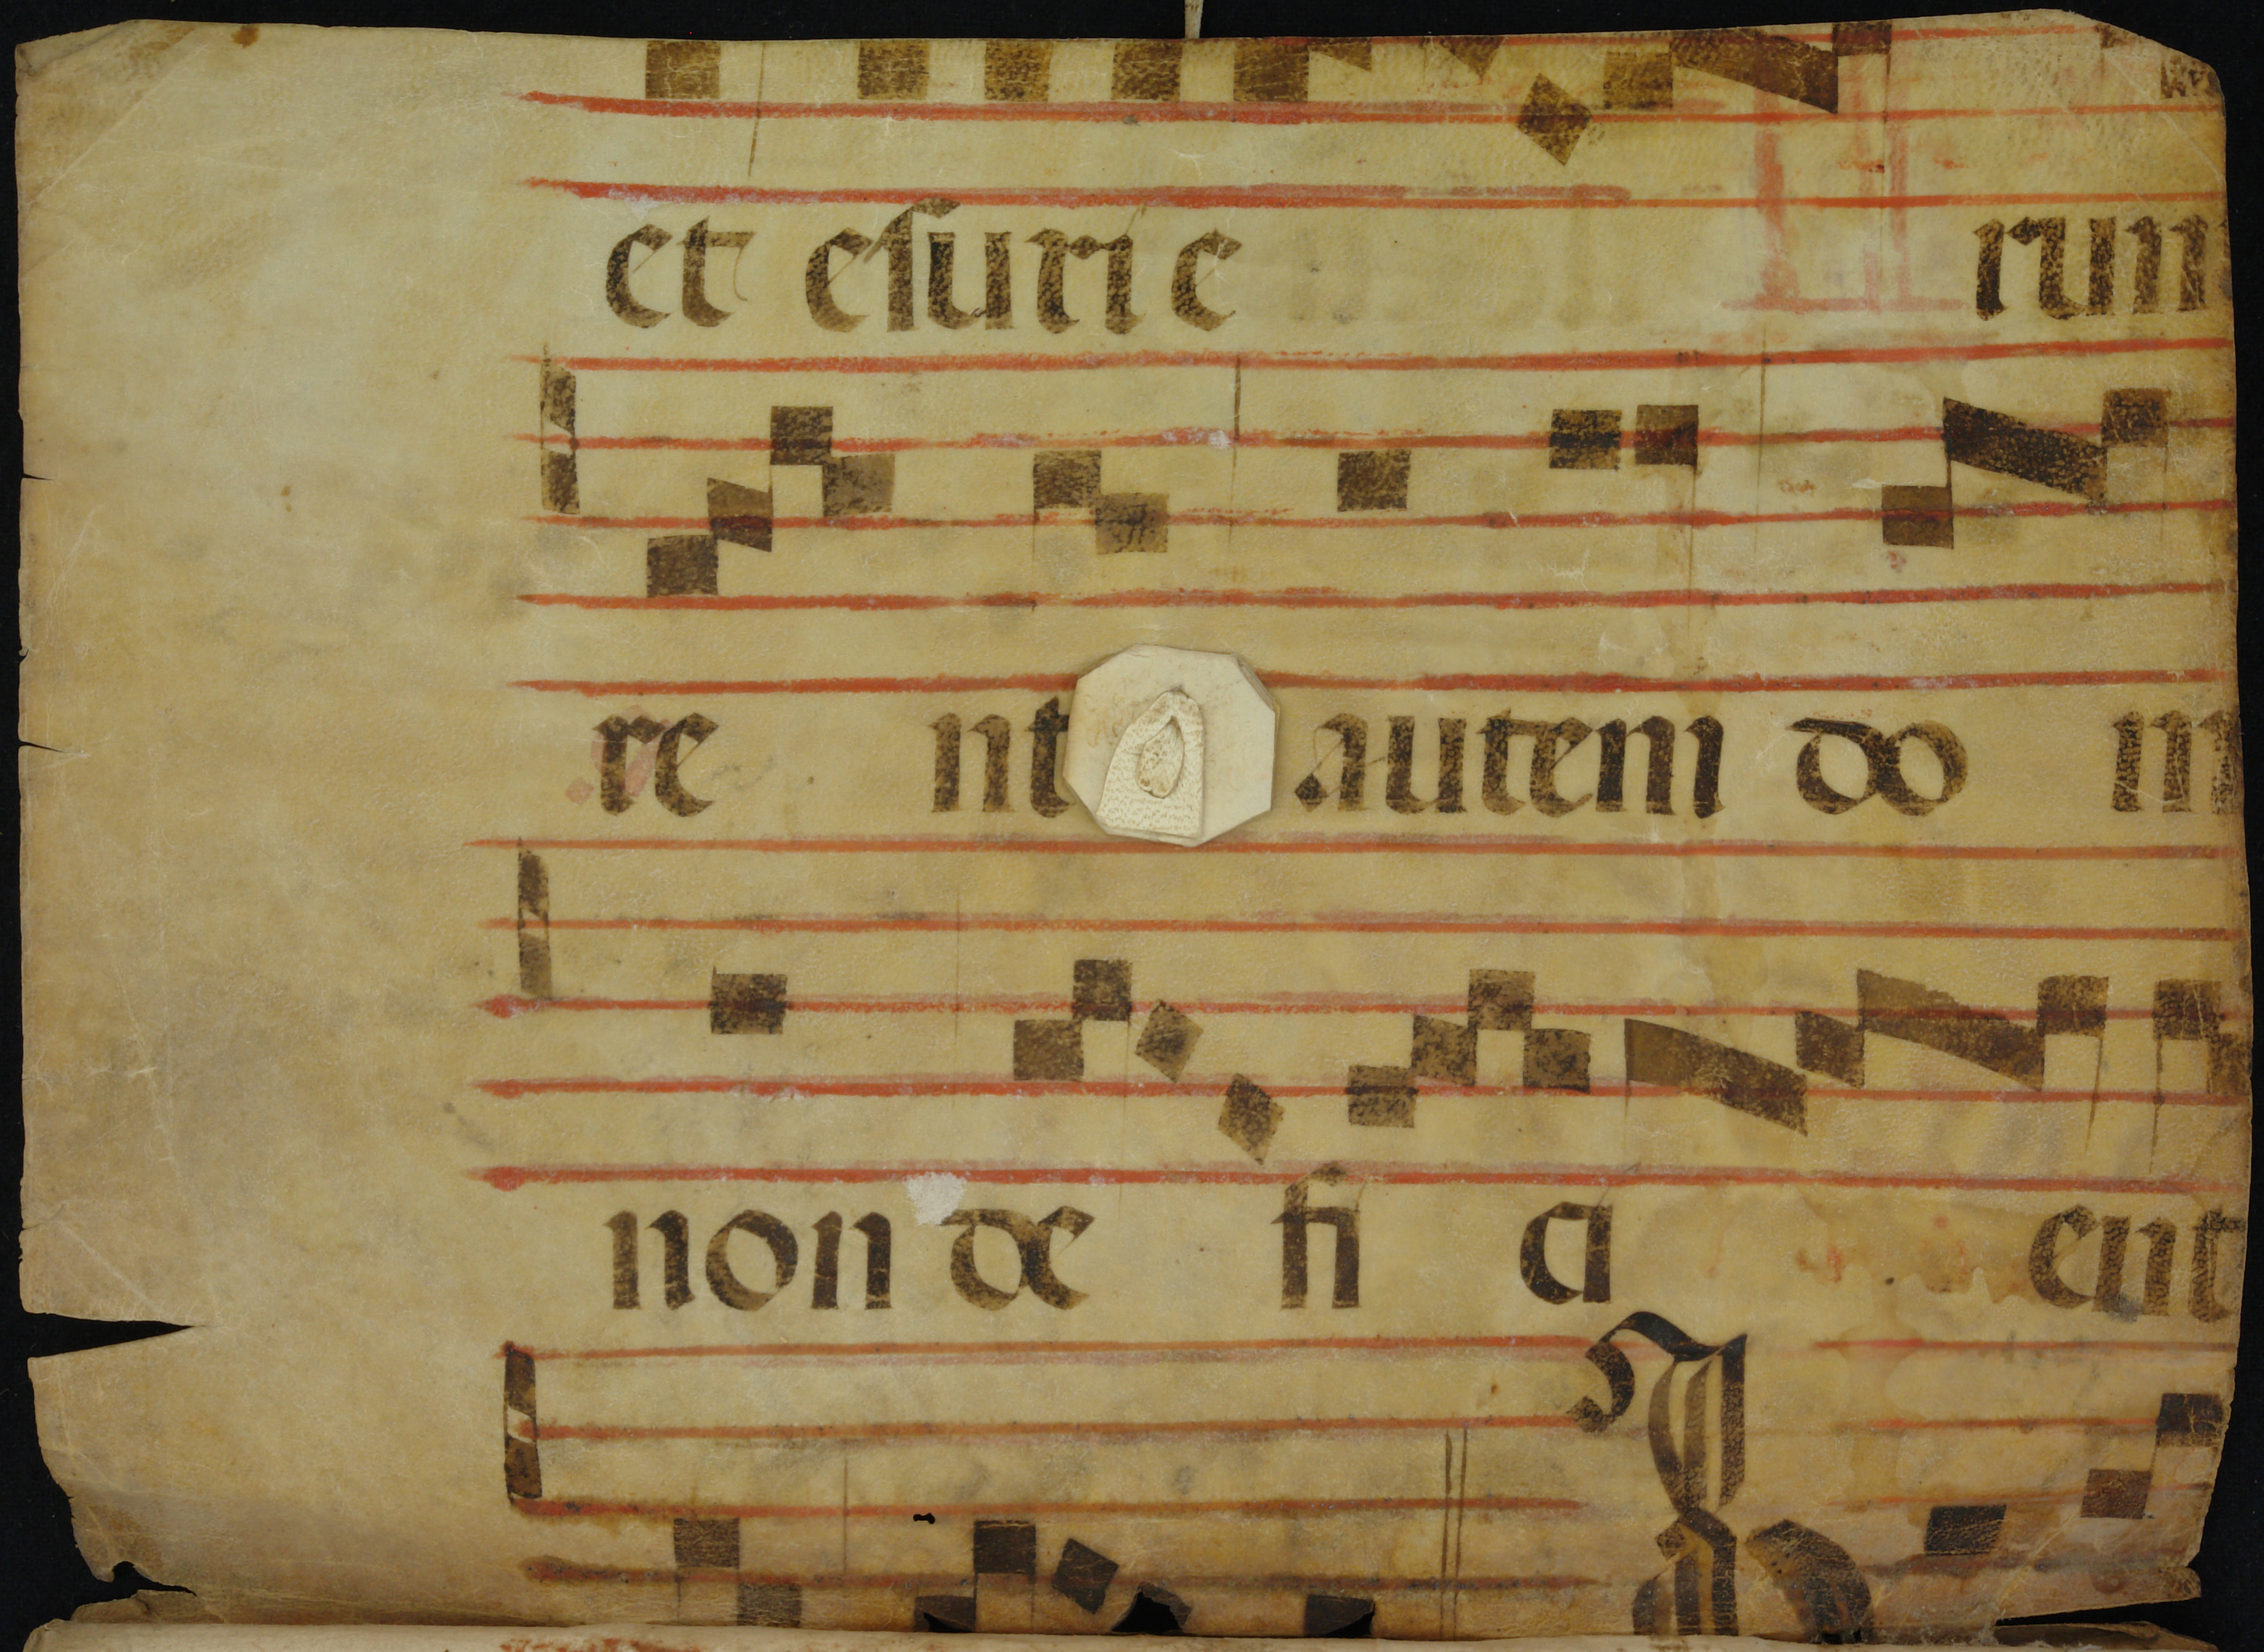 et esurie run
re nt autem do
non de fi ci ent